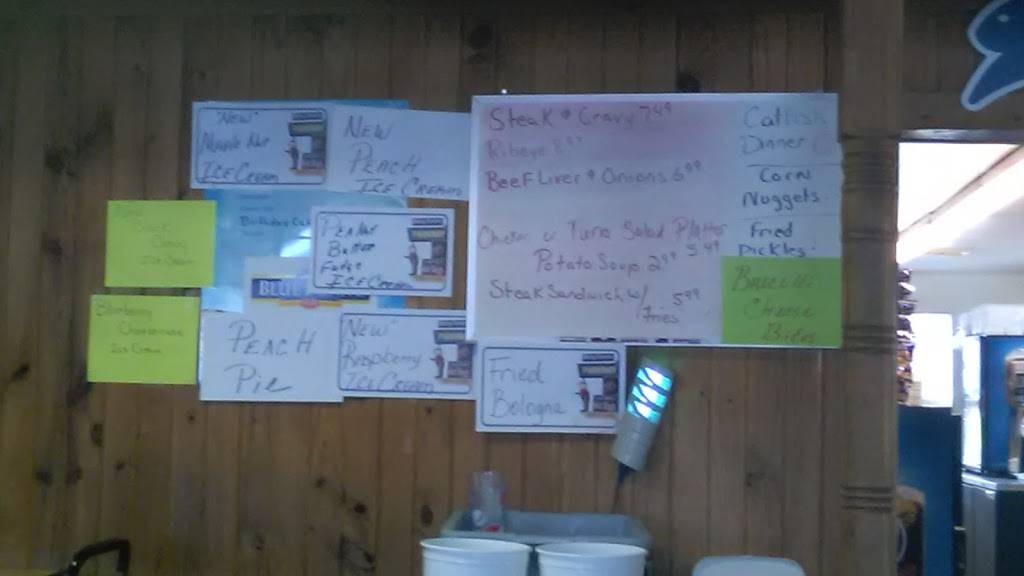 "NEW"
Maple Nut
ICE CREAM
NEW
PEACH
ICE CREAM
Birthday
Peanut
Butter
Fudge
ICE Cream
BLUE
Blueberry
Cheesecake
Ice Cream
Ice Cream
PEACH
Pie
"NEW"
Raspberry
ICE CREAM
Steak & Gravy 7.49
Ribeye
BEEF Liver & Onions 6.99
Tuna Salad Platter
5.49
Potato Soup 2.99
Steak Sandwich w/
fries 5.99
Catfish
Dinner
Corn
Nuggets
Fried
Pickles
Broccoli
Cheese
Bites
Fried
Bologna